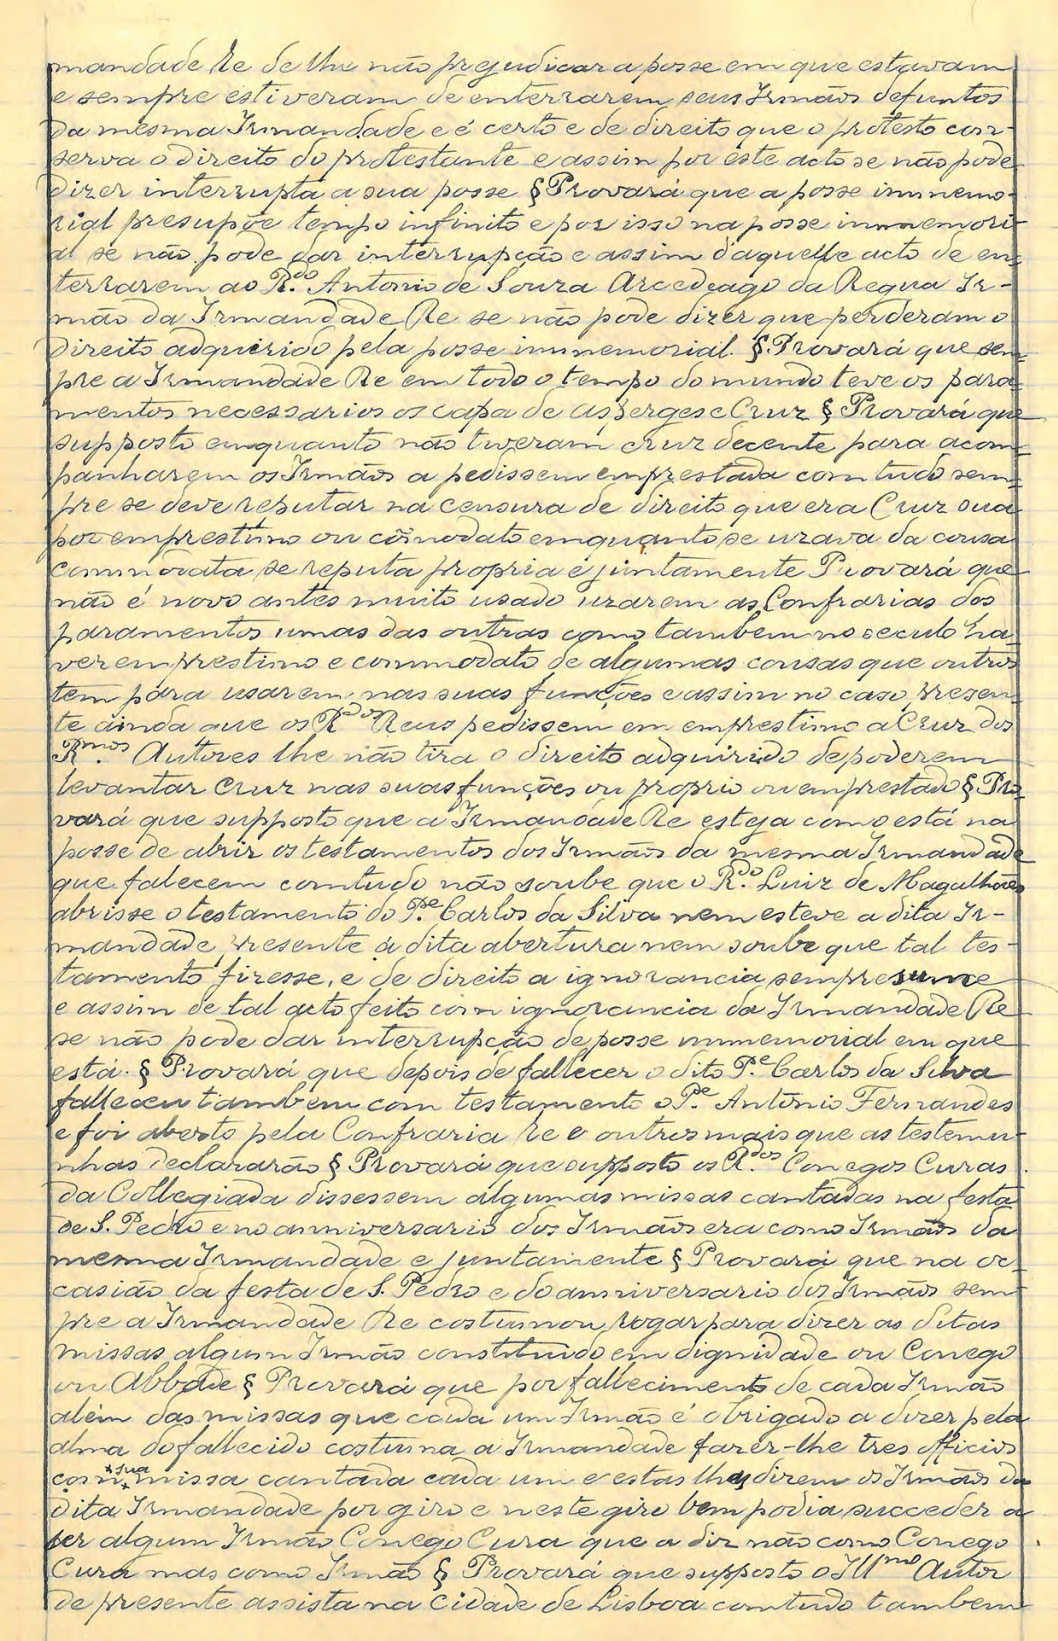 mandade Re de lhe não prejudicar a posse em que estavam
e sempre estiveram de enterrarem seus Irmãos defuntos
da mesma Irmandade e é certo e de direito que o protesto con-
serva o direito do protestante e assim por este acto se não pode
dizer interrupta a sua posse § Provará que a posse immemo-
rial presupõe tempo infinito e por isso na posse immemori-
al se não pode dar interrupção e assim d'aquelle acto de en-
terrarem ao R.do Antonio de Souza Arcedeago da Regua Ir-
mão da Irmandade Re se não pode dizer que perderam o
direito adquirido pela posse immemorial. § Provará que sem-
pre a Irmandade Re em todo o tempo do mundo teve os para-
mentos necessarios os capa de asperges e Cruz § Provará que
supposto emquanto não tiveram cruz decente para acom-
panharem os Irmãos a pedissem emprestada comtudo sem-
pre se deve reputar na censura de direito que era Cruz sua
por emprestimo ou cõmodato emquanto se uzava da cousa
commodata se reputa propria é juntamente Provará que
não é novo antes muito usado uzarem as Confrarias dos
paramentos umas das outras como tambem no seculo ha-
ver emprestimo e commodato de algumas cousas que outros
tem para usarem nas suas funções e assim no caso presen-
te ainda que os R.dos Reus pedissem em emprestimo a Cruz dos
R.mos Autores lhe não tira o direito adquirido de poderem
levantar Cruz nas suas funções ou proprio ou emprestado § Pro-
vará que supposto que a Irmandade Re esteja como está na
posse de abrir os testamentos dos Irmãos da mesma Irmandade
que falecem comtudo não soube que o R.do Luiz de Magalhães
abrisse o testamento do P.e Carlos da Silva nem esteve a dita Ir-
mandade presente á dita abertura nem soube que tal tes-
tamento fizesse, e de direito a ignorancia sempre sume
e assim de tal acto feito com ignorancia da Irmandade Re
se não pode dar interrupção de posse immemorial em que
está. § Provará que depois de fallecer o dito P.e Carlos da Silva
falleceu tambem com testamento o P.e Antonio Fernandes
e foi aberto pela Confraria Re e outros mais que as testemu-
nhas declararão § Provará que supposto os R.dos Conegos Curas
da Collegiada dissessem algumas missas cantadas na festa
de S. Pedro e no anniversario dos Irmãos era como Irmãos da
mesma Irmandade e juntamente § Provará que na oc-
casião da festa de S. Pedro e do anniversario dos Irmãos sem-
pre a Irmandade Re costumou rogar para dizer as ditas
missas algum Irmão constituido em dignidade ou Conego
ou Abbade § Provará que por fallecimento de cada Irmão
além das missas que cada um Irmão é obrigado a dizer pela
alma do fallecido costuma a Irmandade fazer-lhe tres officios
com sua missa cantada cada um e estas lhes dizem os Irmãos da
dita Irmandade por giro e neste giro bem podia succeder a
ser algum Irmão Conego Cura que a diz não como Conego
Cura mas como Irmão § Provará que supposto o Ill.mo Autor
de presente assista na Cidade de Lisboa comtudo tambem